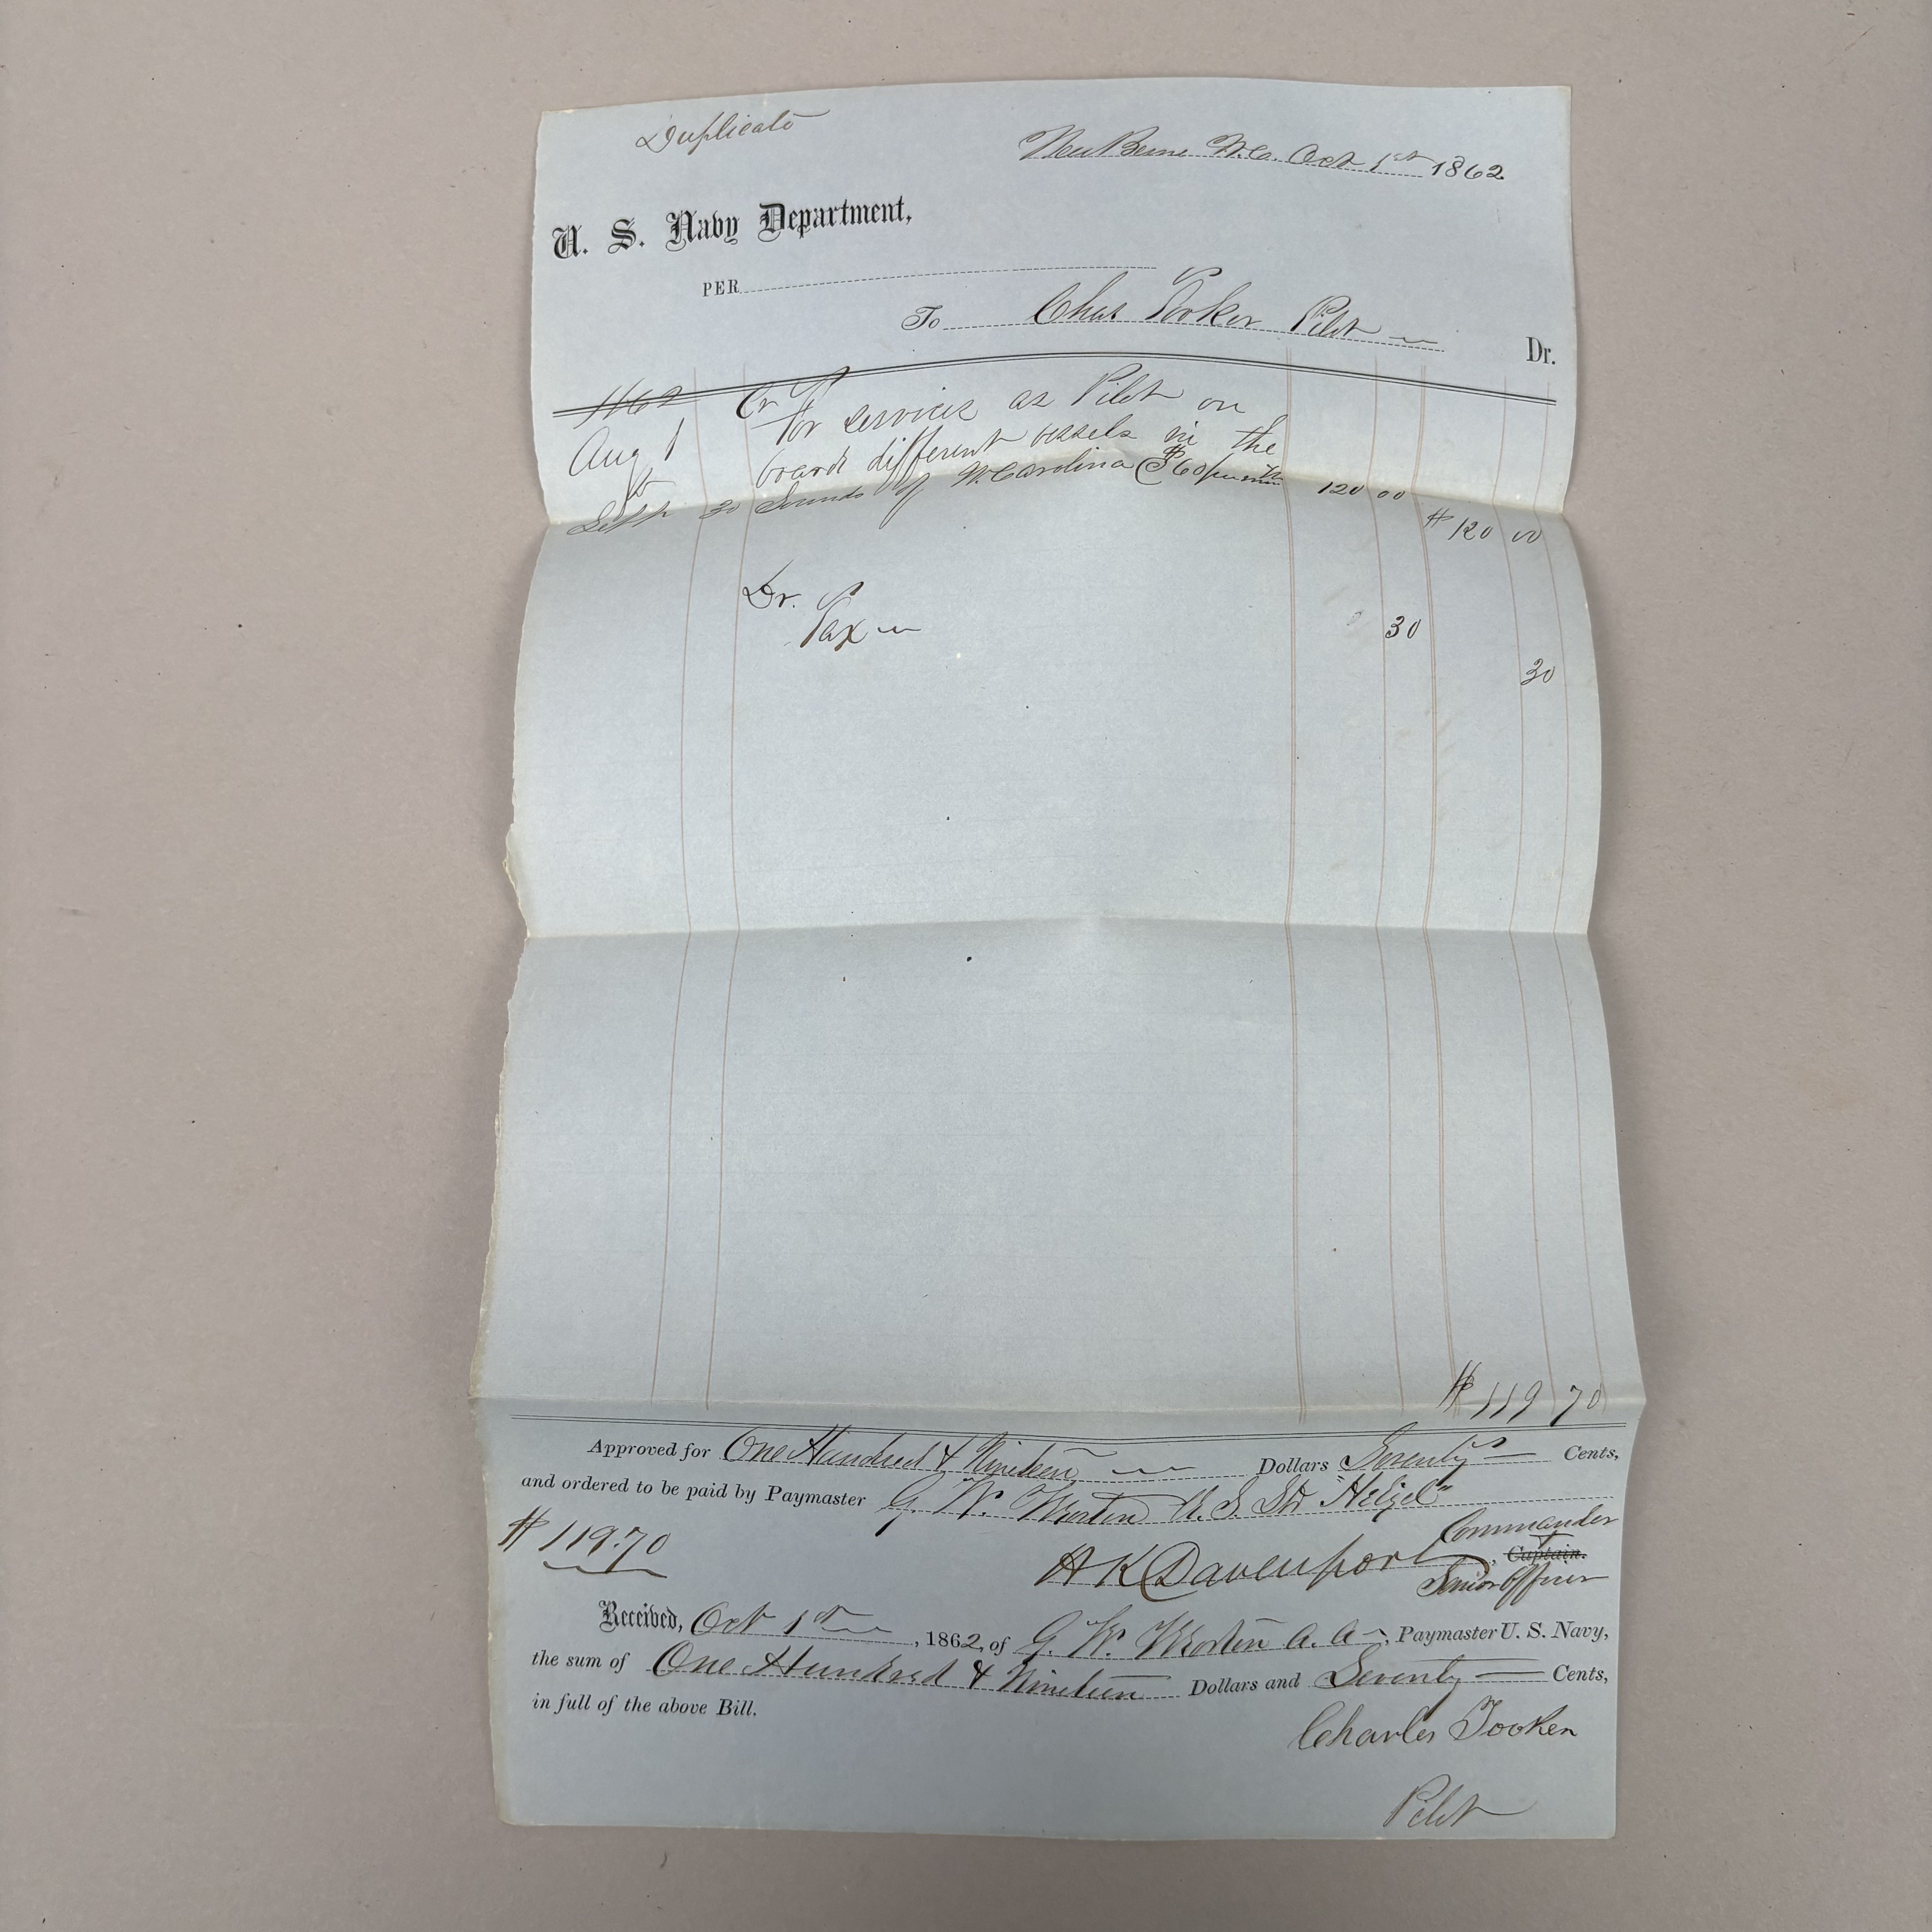 Duplicate
New Berne N.Ca. Oct 1st 1862
U. S. Navy Department,
PER
To Chas Tooker Pilot
Dr.
1862 Cr
Aug 1 For services as Pilot on
to board different vessels in the
Sept 30 Sounds of N. Carolina @ $60 per mth 120 00
$120 00
Dr.
Tax 30
30
$119 70
Approved for One Hundred & Nineteen Dollars Seventy Cents,
and ordered to be paid by Paymaster G. W. U. S. Str "Hetzel"
$119.70
Commander
H K Davenport, Captain.
Senior Officer
Received, Oct 1st, 1862, of G. W. A. A., Paymaster U. S. Navy,
the sum of One Hundred & Nineteen Dollars and Seventy Cents,
in full of the above Bill.
Charles Tooker
Pilot